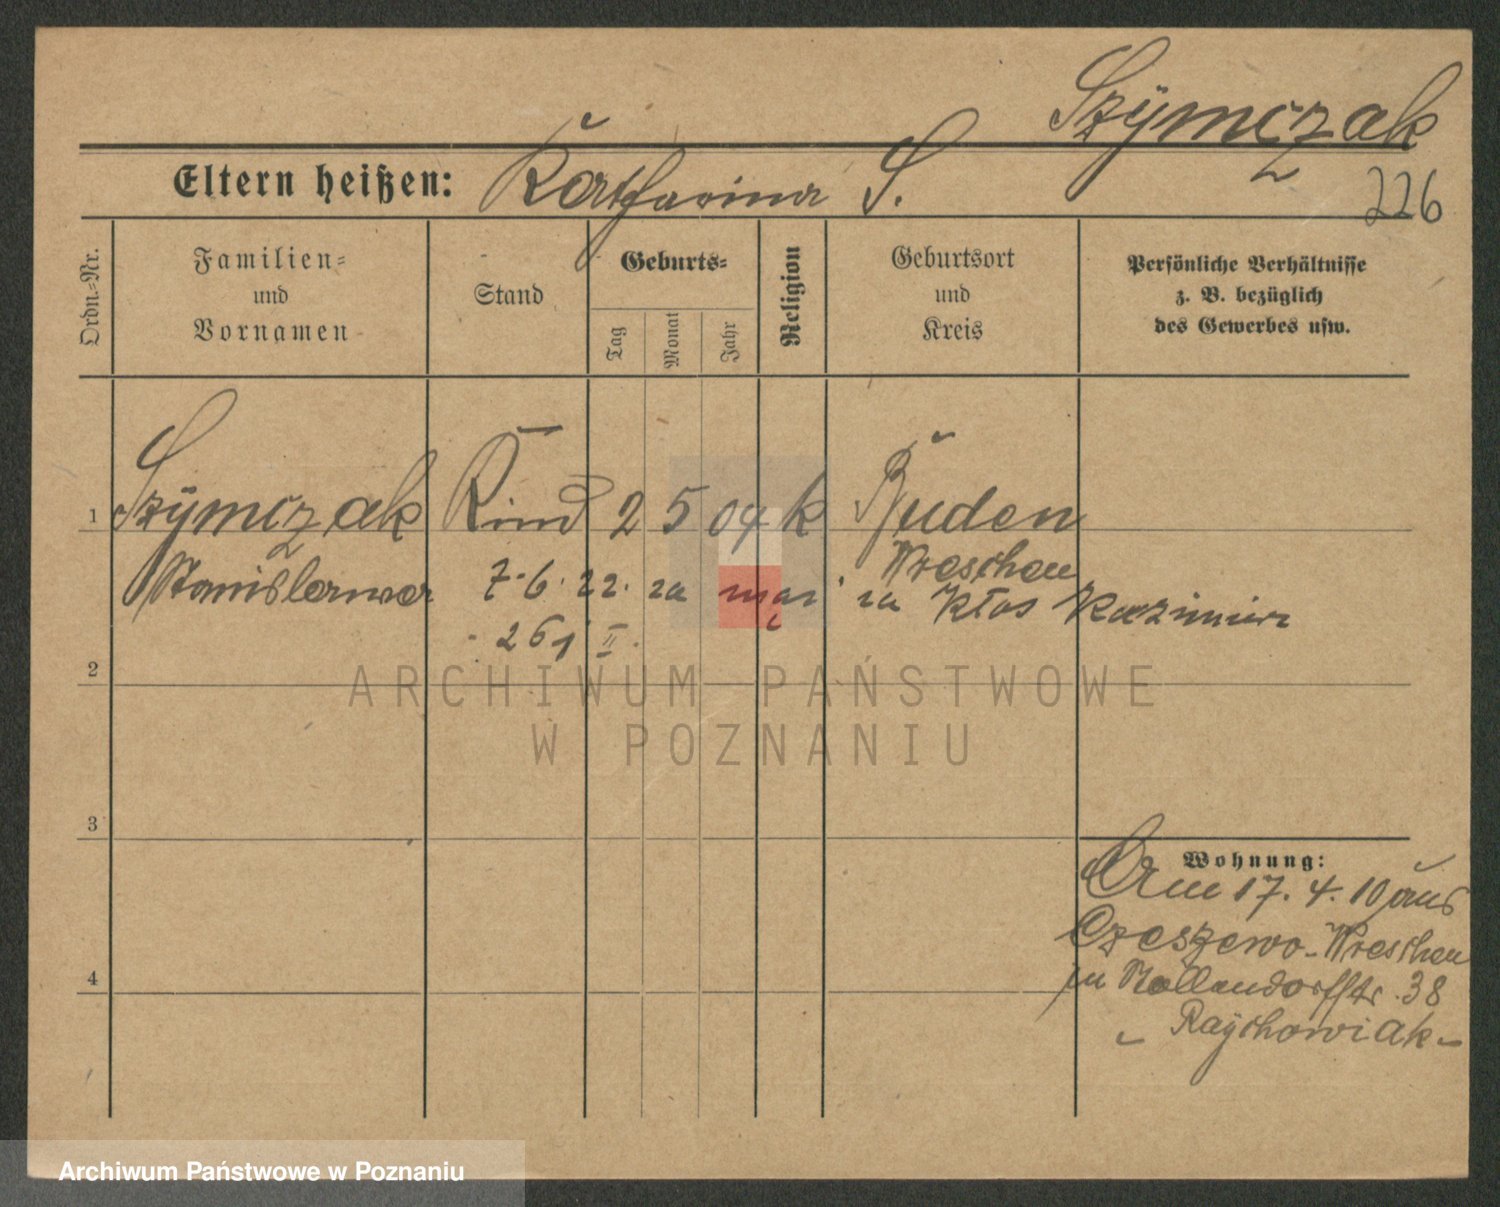 Szymczak
Eltern heißen: Katharina S.
226
Ordn.-Nr.
Familien-
und
Vornamen
Stand
Geburts-
Tag
Monat
Jahr
Religion
Geburtsort
und
Kreis
Persönliche Verhältnisse
z. B. bezüglich
des Gewerbes usw.
1 Szymczak Kind 2 5 04 k Buden
Wreschen
Stanislawa 7.6.22. za mąż za Kłos Kazimierz
261 II.
2
3
4
Wohnung:
Am 17. 4. 10 aus
Czeszewo-Wreschen
in 38
Archiwum Państwowe
w Poznaniu
Archiwum Państwowe w Poznaniu